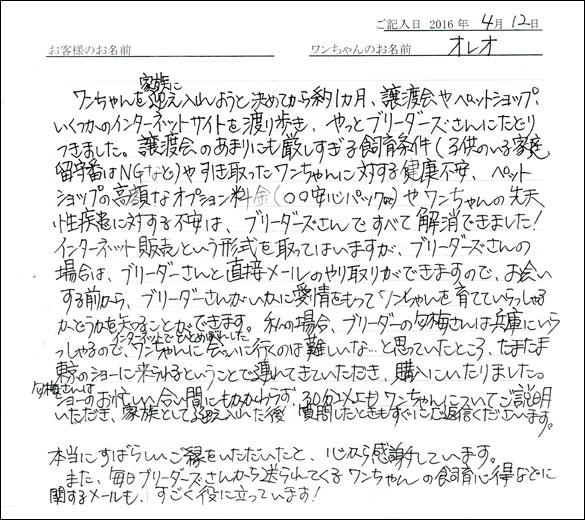 ご記入日 2016年 4月 12日
お客様のお名前
ワンちゃんのお名前 オレオ
ワンちゃんを家族に迎え入れようと決めてから約1カ月、譲渡会やペットショップ、
いくつかのインターネットサイトを渡り歩き、やっとブリーダーズさんにたどり
つきました。譲渡会のあまりにも厳しすぎる飼育条件(子供のいる家庭
留守番はNGなど)や引き取ったワンちゃんに対する健康不安、ペット
ショップの高額なオプション料金(○○安心パック等)やワンちゃんの先天
性疾患に対する不安は、ブリーダーズさんですべて解消できました!
インターネット販売という形式を取ってはいますが、ブリーダーズさんの
場合は、ブリーダーさんと直接メールのやり取りができますので、お会い
する前から、ブリーダーさんがいかに愛情をもってワンちゃんを育てていらっしゃる
かどうかを知ることができます。私の場合、ブリーダーの匂梅さんは兵庫にいら
っしゃるので、インターネットでひとめぼれした
ワンちゃんに会いに行くのは難しいな…と思っていたところ、たまたま
東京のショーに来られるということで連れてきていただき、購入にいたりました。
匂梅さんは
ショーのお忙しい合い間にもかかわらず、30分以上もワンちゃんについてご説明
いただき、家族として迎え入れた後、質問したときもすぐにご返信くださいます。
本当にすばらしいご縁をいただいたと、心から感謝しています。
また、毎日ブリーダーズさんから送られてくるワンちゃんの飼育心得などに
関するメールも、すごく役に立っています!